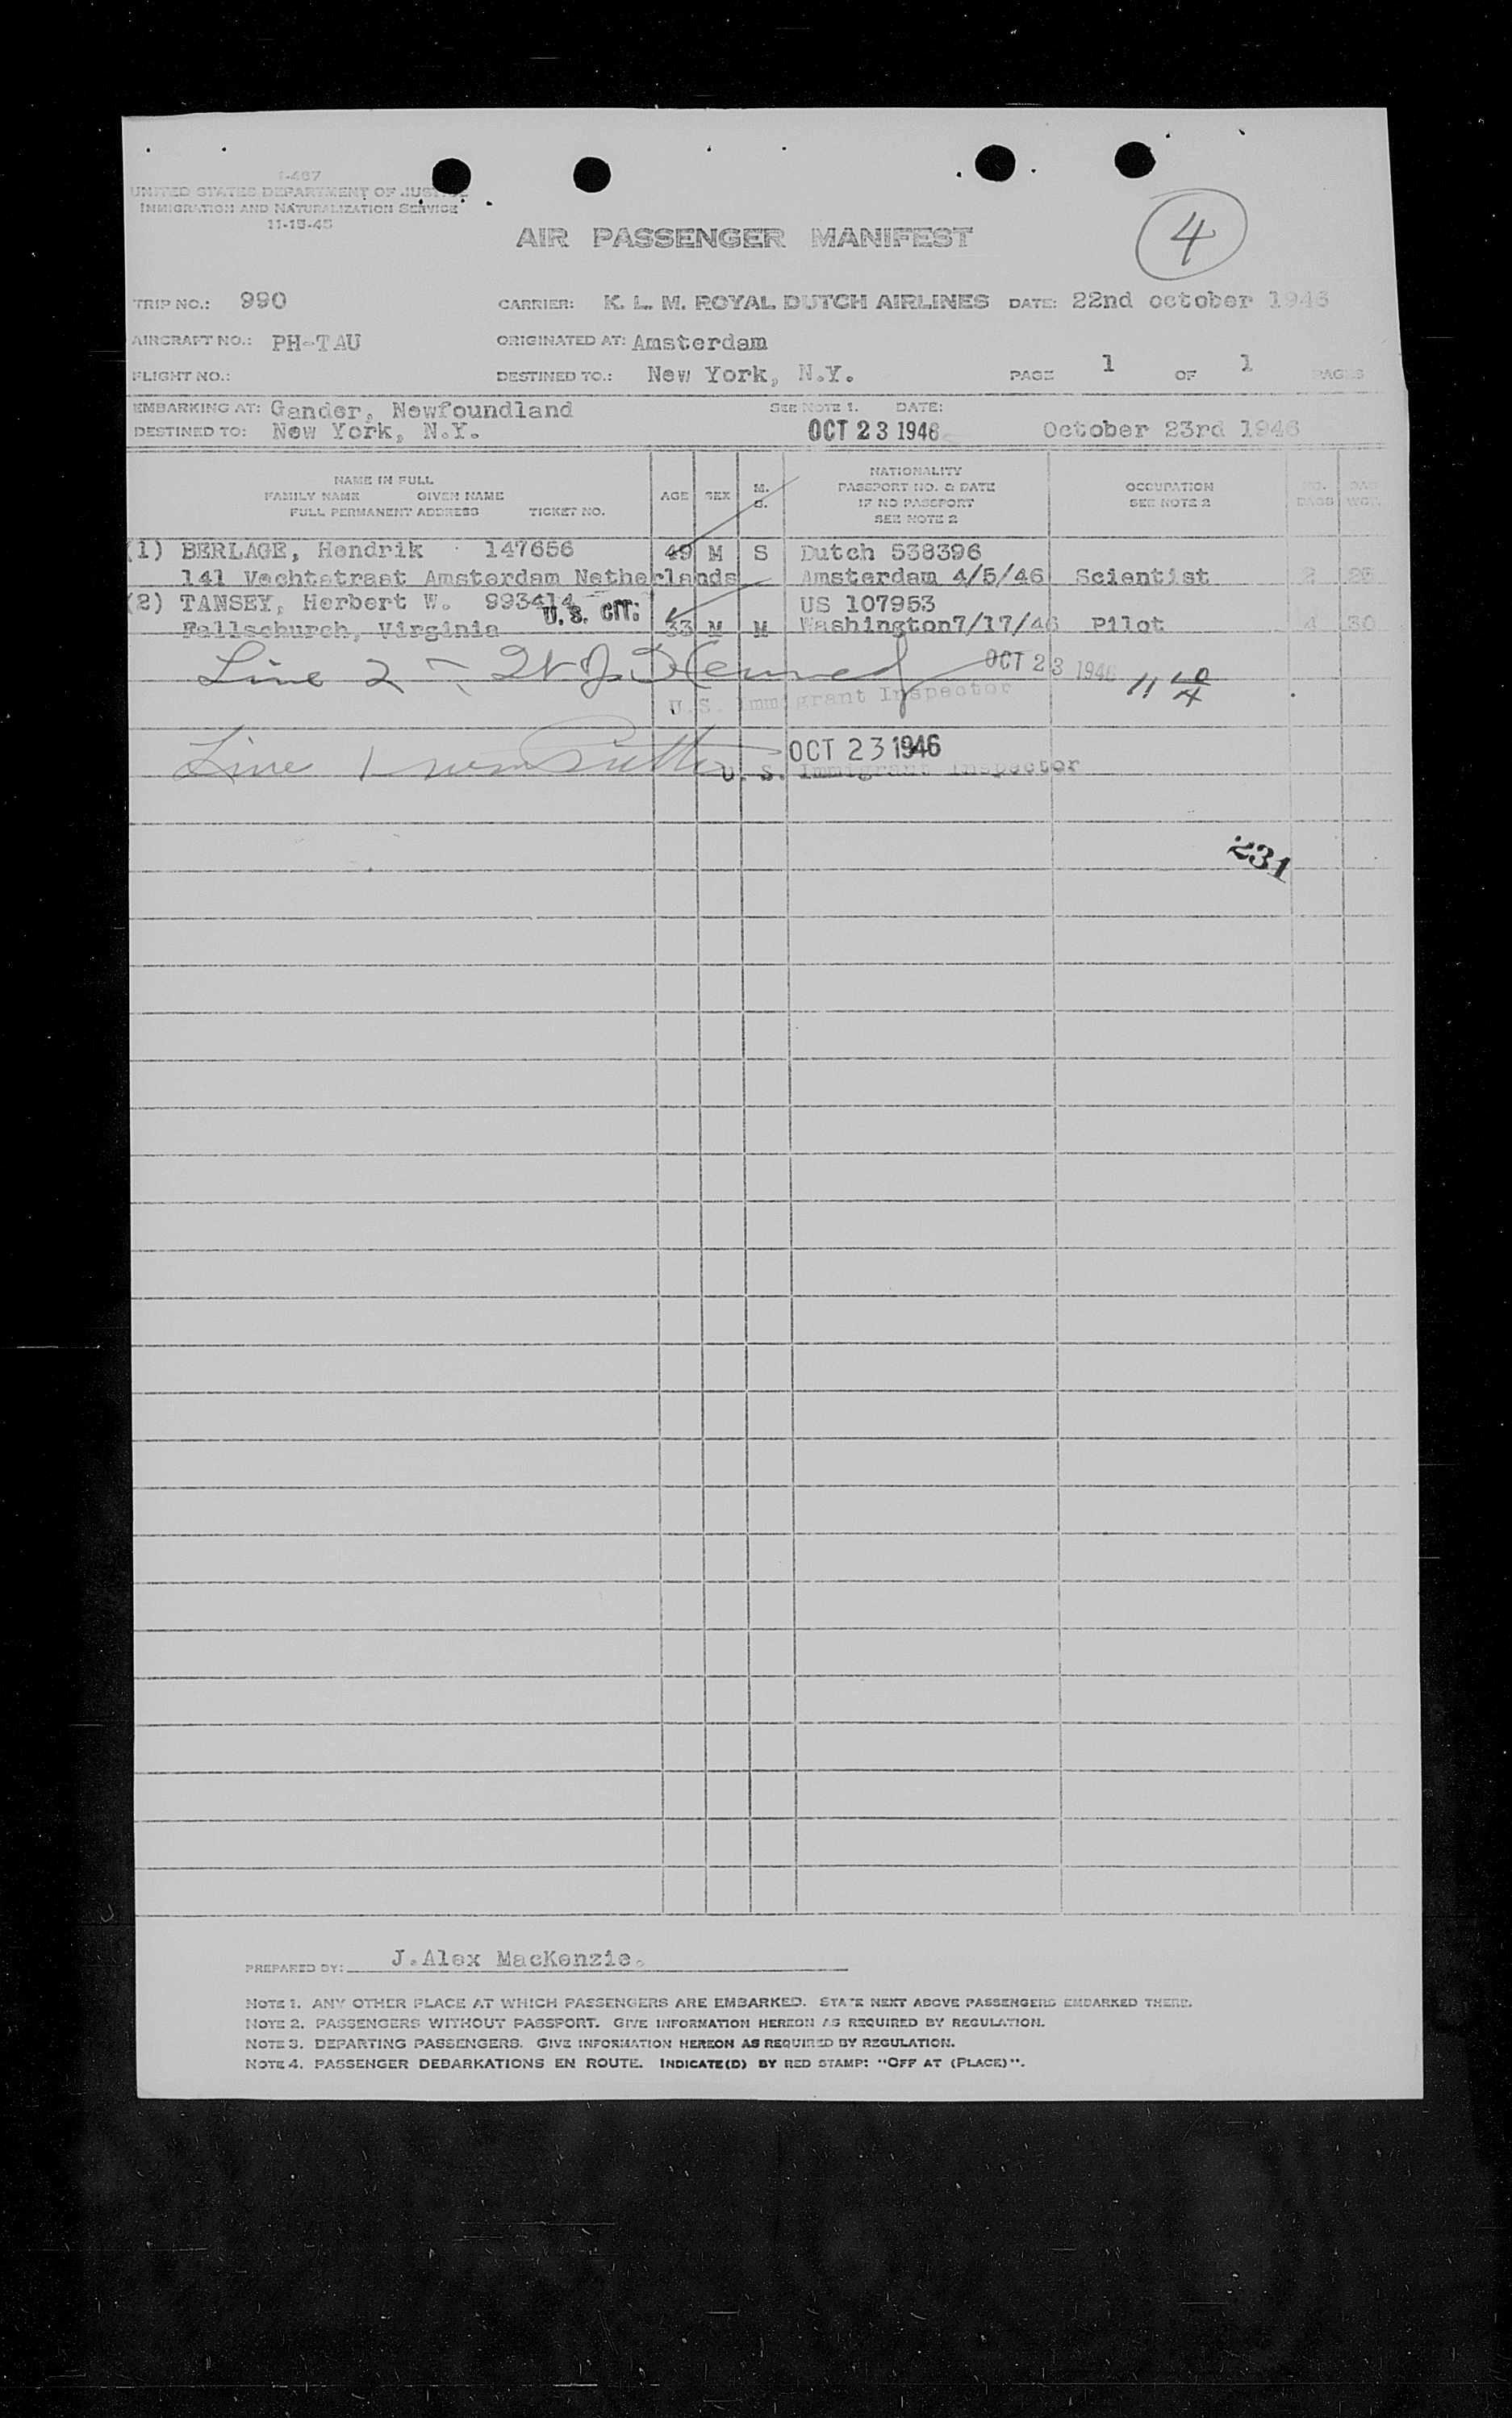 I-467
UNITED STATES DEPARTMENT OF JUSTICE
IMMIGRATION AND NATURALIZATION SERVICE
11-15-45
AIR PASSENGER MANIFEST
4
TRIP NO.: 990 CARRIER: K. L. M. ROYAL DUTCH AIRLINES DATE: 22nd october 1946
AIRCRAFT NO.: PH-TAU ORIGINATED AT: Amsterdam
FLIGHT NO.: DESTINED TO.: New York, N.Y. PAGE 1 OF 1 PAGES
EMBARKING AT: Gander, Newfoundland SEE NOTE 1. DATE:
DESTINED TO: New York, N.Y. OCT 23 1946 October 23rd 1946
NAME IN FULL
FAMILY NAME GIVEN NAME
FULL PERMANENT ADDRESS TICKET NO.
AGE SEX M. S.
NATIONALITY
PASSPORT NO. & DATE
IF NO PASSPORT
SEE NOTE 2
OCCUPATION
SEE NOTE 2
NO. BAGS
BAG WGT.
(1) BERLAGE, Hendrik 147656 49 M S Dutch 538396
141 Vechtstraat Amsterdam Netherlands Amsterdam 4/5/46 Scientist 2 25
(2) TANSEY, Herbert W. 993414 U.S. CIT: 33 M M US 107953
Fallschurch, Virginia Washington7/17/46 Pilot 4 30
Line 2 OCT 23 1946
U.S. Immigrant Inspector
Line 1 OCT 23 1946
U. S. Immigrant Inspector
231
PREPARED BY: J.Alex MacKenzie.
NOTE 1. ANY OTHER PLACE AT WHICH PASSENGERS ARE EMBARKED. STATE NEXT ABOVE PASSENGERS EMBARKED THERE.
NOTE 2. PASSENGERS WITHOUT PASSPORT. GIVE INFORMATION HEREON AS REQUIRED BY REGULATION.
NOTE 3. DEPARTING PASSENGERS. GIVE INFORMATION HEREON AS REQUIRED BY REGULATION.
NOTE 4. PASSENGER DEBARKATIONS EN ROUTE. INDICATE(D) BY RED STAMP: "OFF AT (PLACE)".